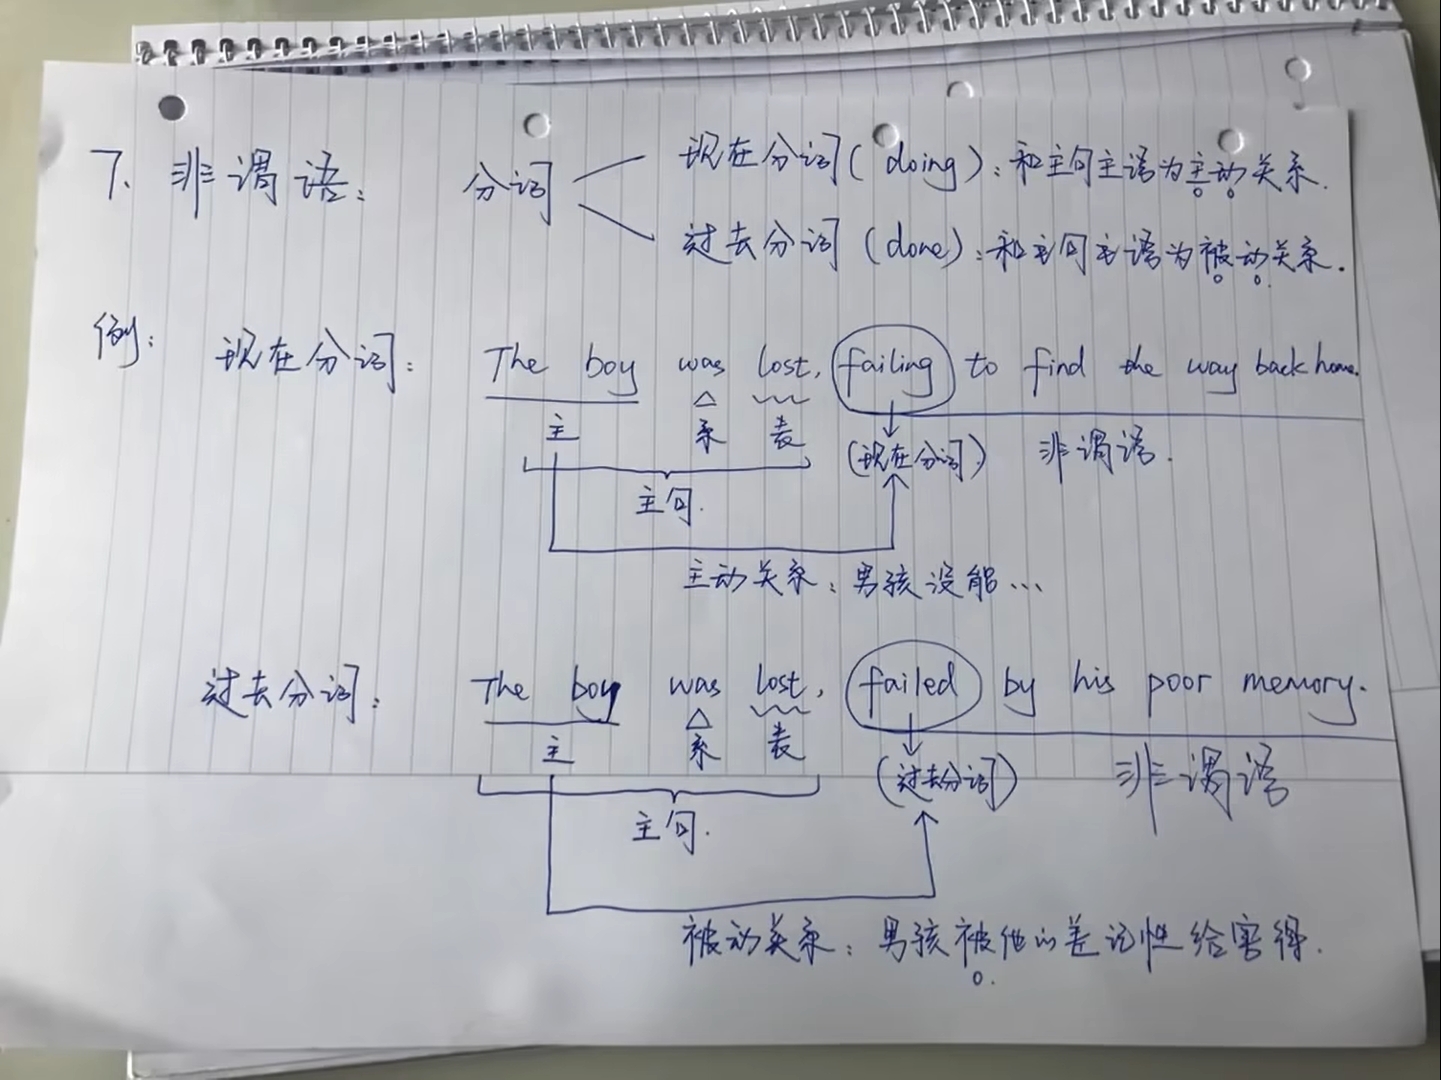 7、非谓语： 分词
现在分词(doing)：和主句主语为主动关系.
过去分词(done)：和主句主语为被动关系.
例：
现在分词： The boy was lost, failing to find the way back home.
主 系 表 (现在分词) 非谓语.
主句.
主动关系：男孩没能…
过去分词： The boy was lost, failed by his poor memory.
主 系 表 (过去分词) 非谓语
主句.
被动关系：男孩被他的差记性给害得.